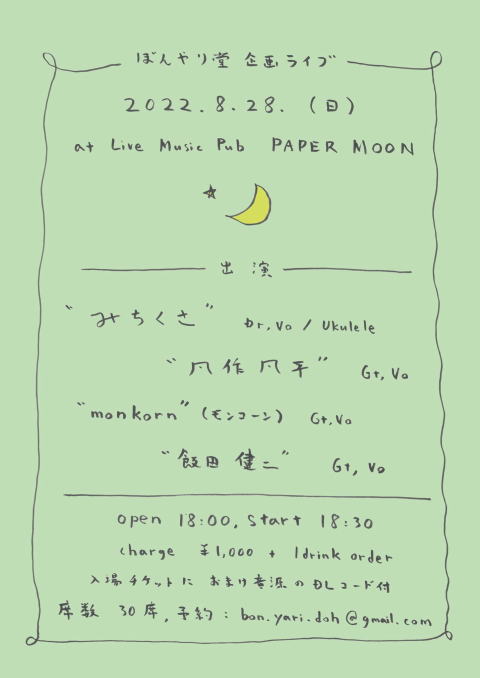 ぼんやり堂 企画ライブ
2022.8.28.（日）
at Live Music Pub PAPER MOON
出演
"みちくさ" Dr,Vo / Ukulele
"凡作凡平" Gt,Vo
"monkorn"（モンコーン） Gt,Vo
"飯田健二" Gt, Vo
open 18:00, start 18:30
charge ¥1,000 + 1drink order
入場チケットに おまけ音源のDLコード付
席数 30席, 予約：bon.yari.doh@gmail.com